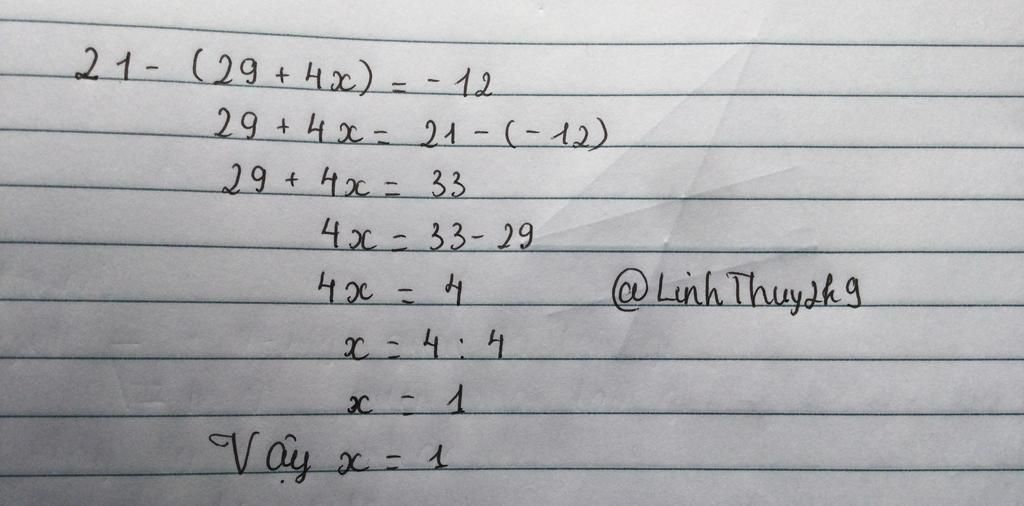 21 - (29 + 4x) = - 12
29 + 4x = 21 - (- 12)
29 + 4x = 33
4x = 33 - 29
4x = 4
@LinhThuy2k9
x = 4 : 4
x = 1
Vậy x = 1